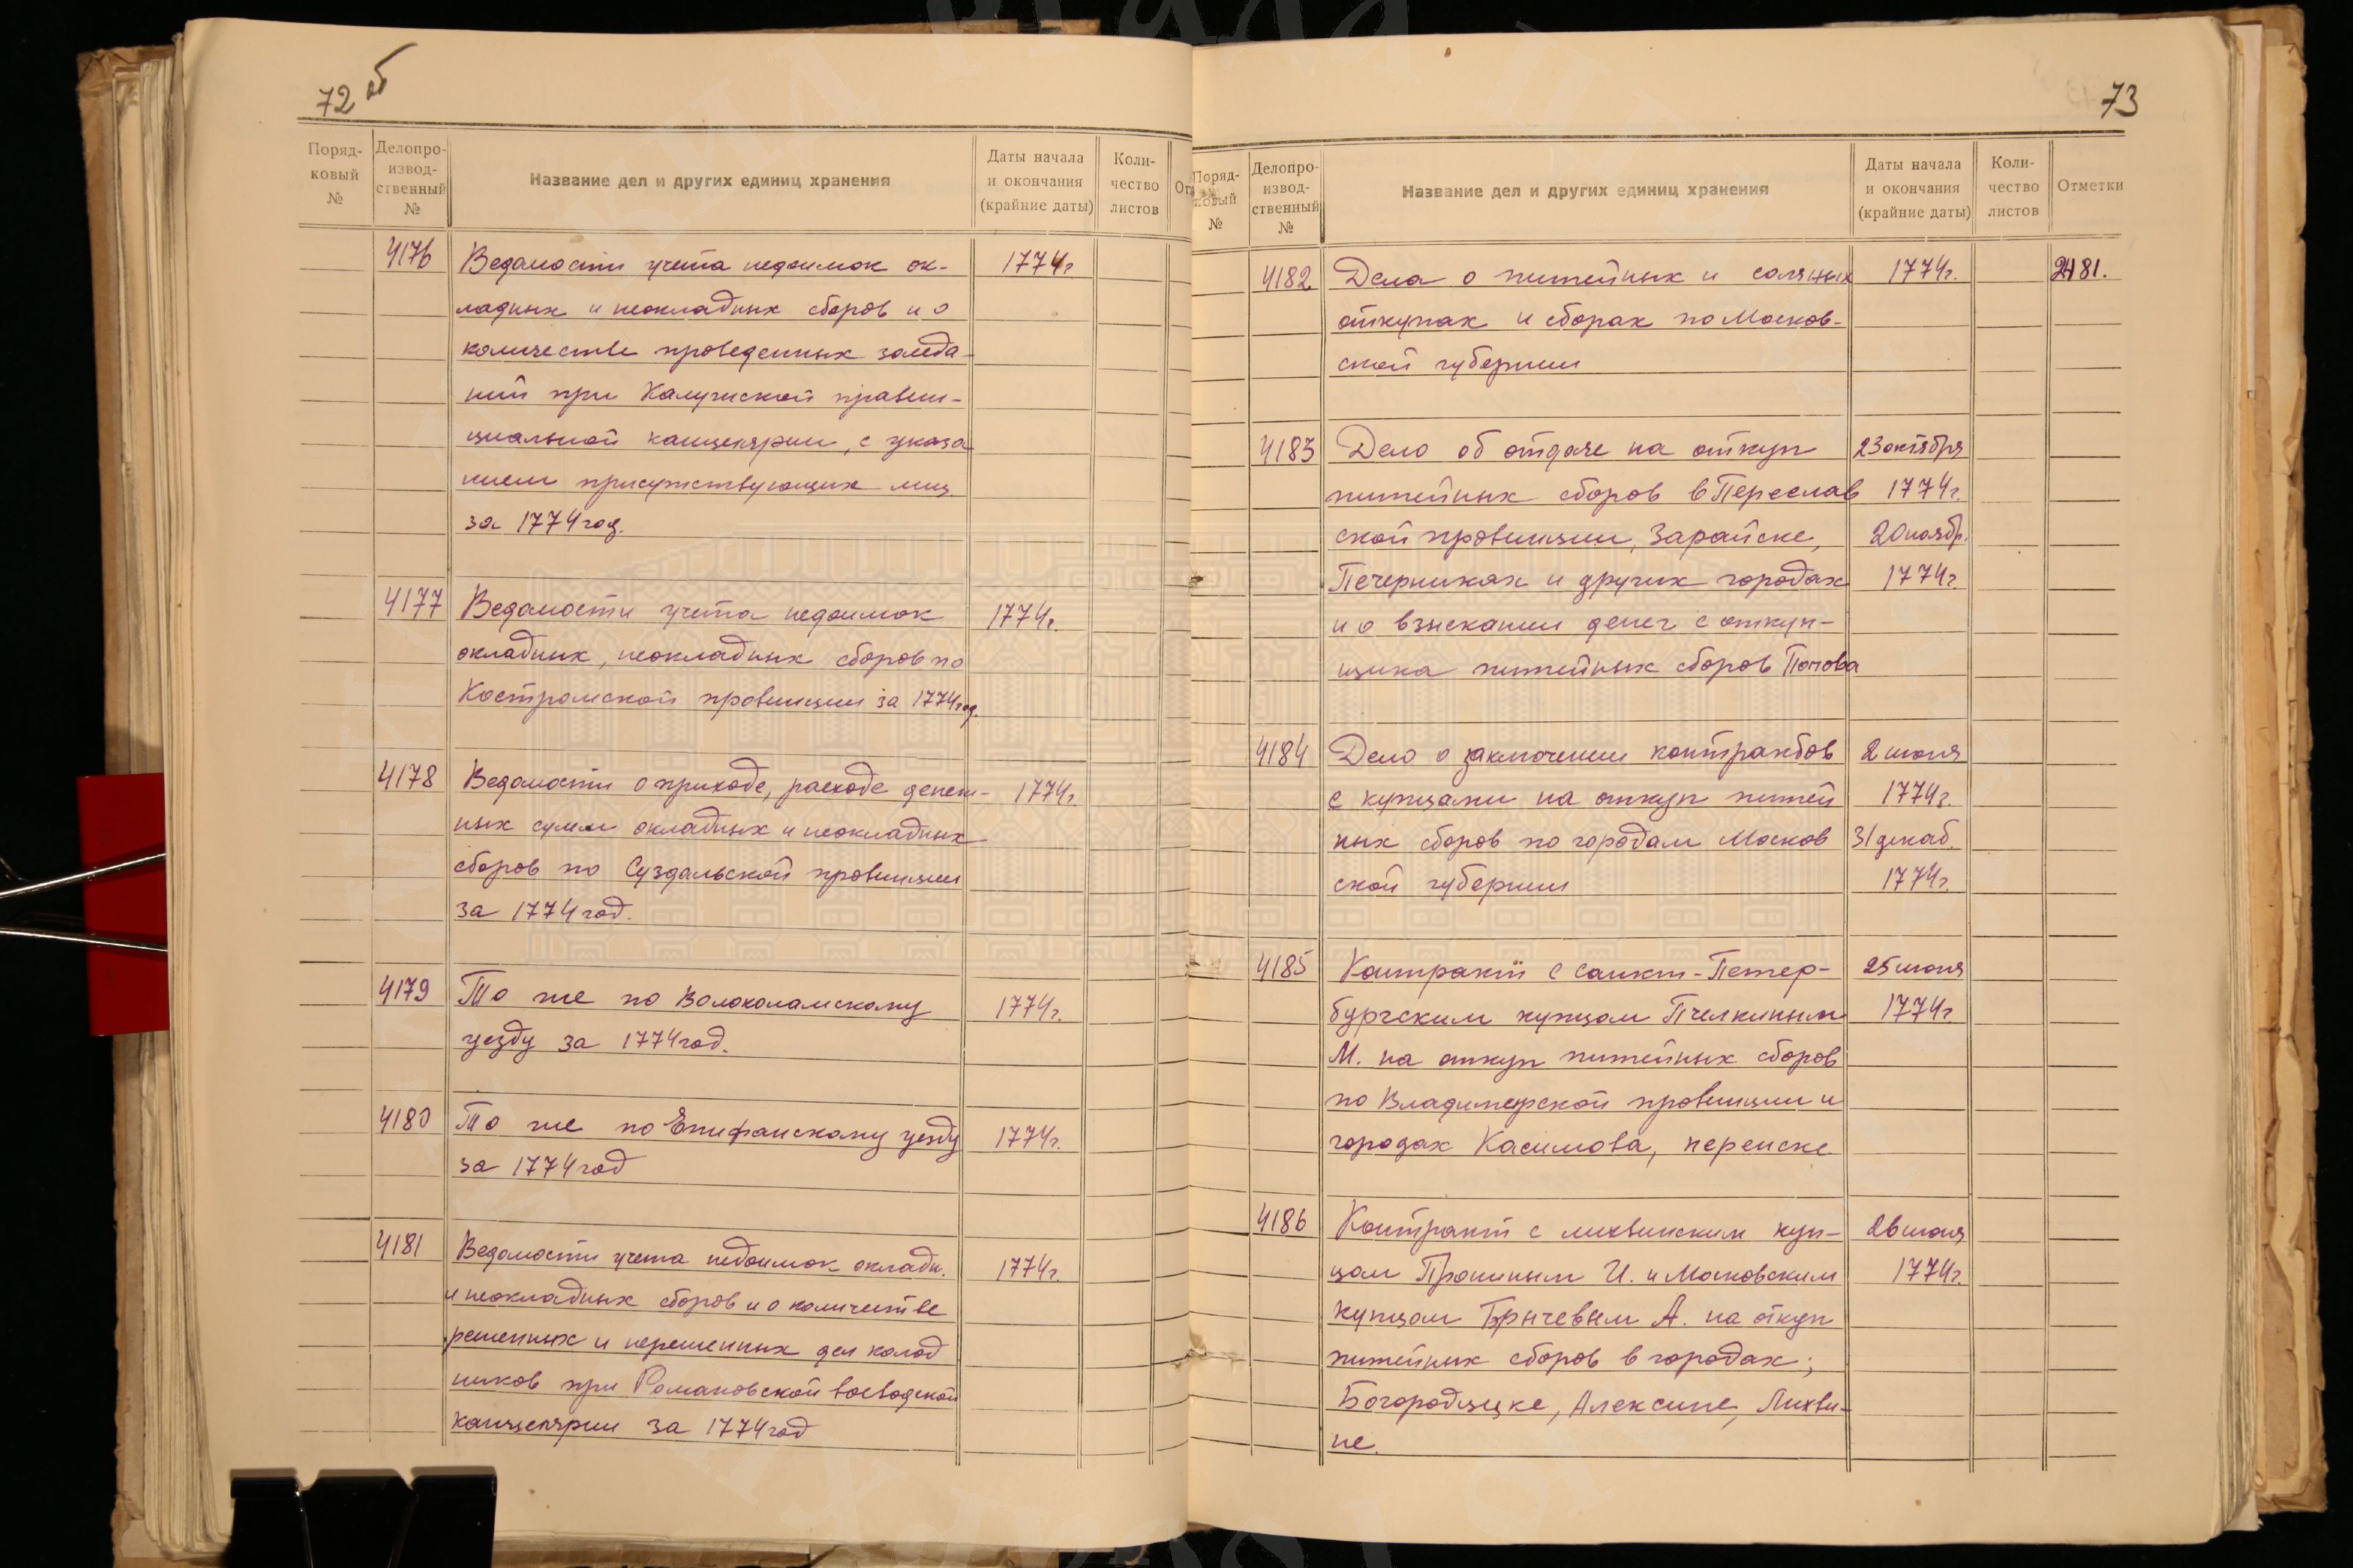 72 об
Поряд-
ковый
№
Делопро-
извод-
ственный
№
Название дел и других единиц хранения
Даты начала
и окончания
(крайние даты)
Коли-
чество
листов
От
4176 Ведомости учета недоимок ок- 1774г
ладных и неокладных сборов и о
количестве проведенных заседа-
ний при Калужской провин-
циальной канцелярии, с указа
нием присутствующих лиц
за 1774 год.
4177 Ведомости учета недоимок 1774г.
окладных, неокладных сборов по
Костромской провинции за 1774год.
4178 Ведомости о приходе, расходе денеж- 1774г
ных сумм окладных и неокладных
сборов по Суздальской провинции
за 1774 год.
4179 То же по Волоколамскому 1774г.
уезду за 1774 год.
4180 То же по Епифанскому уезду 1774г.
за 1774 год
4181 Ведомости учета недоимок окладн. 1774г.
и неокладных сборов и о количестве
решенных и нерешенных дел колод
ников при Романовской воеводской
канцелярии за 1774 год
73
Поряд-
ковый
№
Делопро-
извод-
ственный
№
Название дел и других единиц хранения
Даты начала
и окончания
(крайние даты)
Коли-
чество
листов
Отметки
4182 Дела о питейных и соляных 1774г. 81.
откупах и сборах по Москов-
ской губернии
4183 Дело об отдаче на откуп 23 октября
питейных сборов в Переслав 1774г.
ской провинции, Зарайске, 20 ноябр.
Печерниках и других городах 1774г.
и о взыскании денег с откуп-
щика питейных сборов Попова
4184 Дело о заключении контрактов 2 июня
с купцами на откуп питей 1774г.
ных сборов по городам Москов 31 декаб.
ской губернии 1774г.
4185 Контракт с Санкт-Петер- 25 июня
бургским купцом Пчелкиным 1774г.
М. на откуп питейных сборов
по Владимирской провинции и
городах Касимова,
4186 Контракт с лихвинским куп- 26 июня
цом Прониным И. и Московским 1774г.
купцом Брычевым А. на откуп
питейных сборов в городах;
Богородицке, Алексине, Лихви-
не.